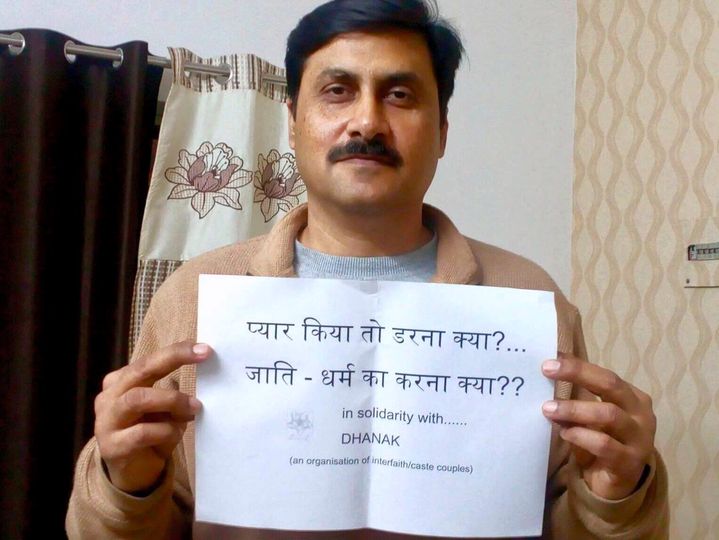 प्यार किया तो डरना क्या?...
जाति - धर्म का करना क्या??
in solidarity with......
DHANAK
(an organisation of interfaith/caste couples)